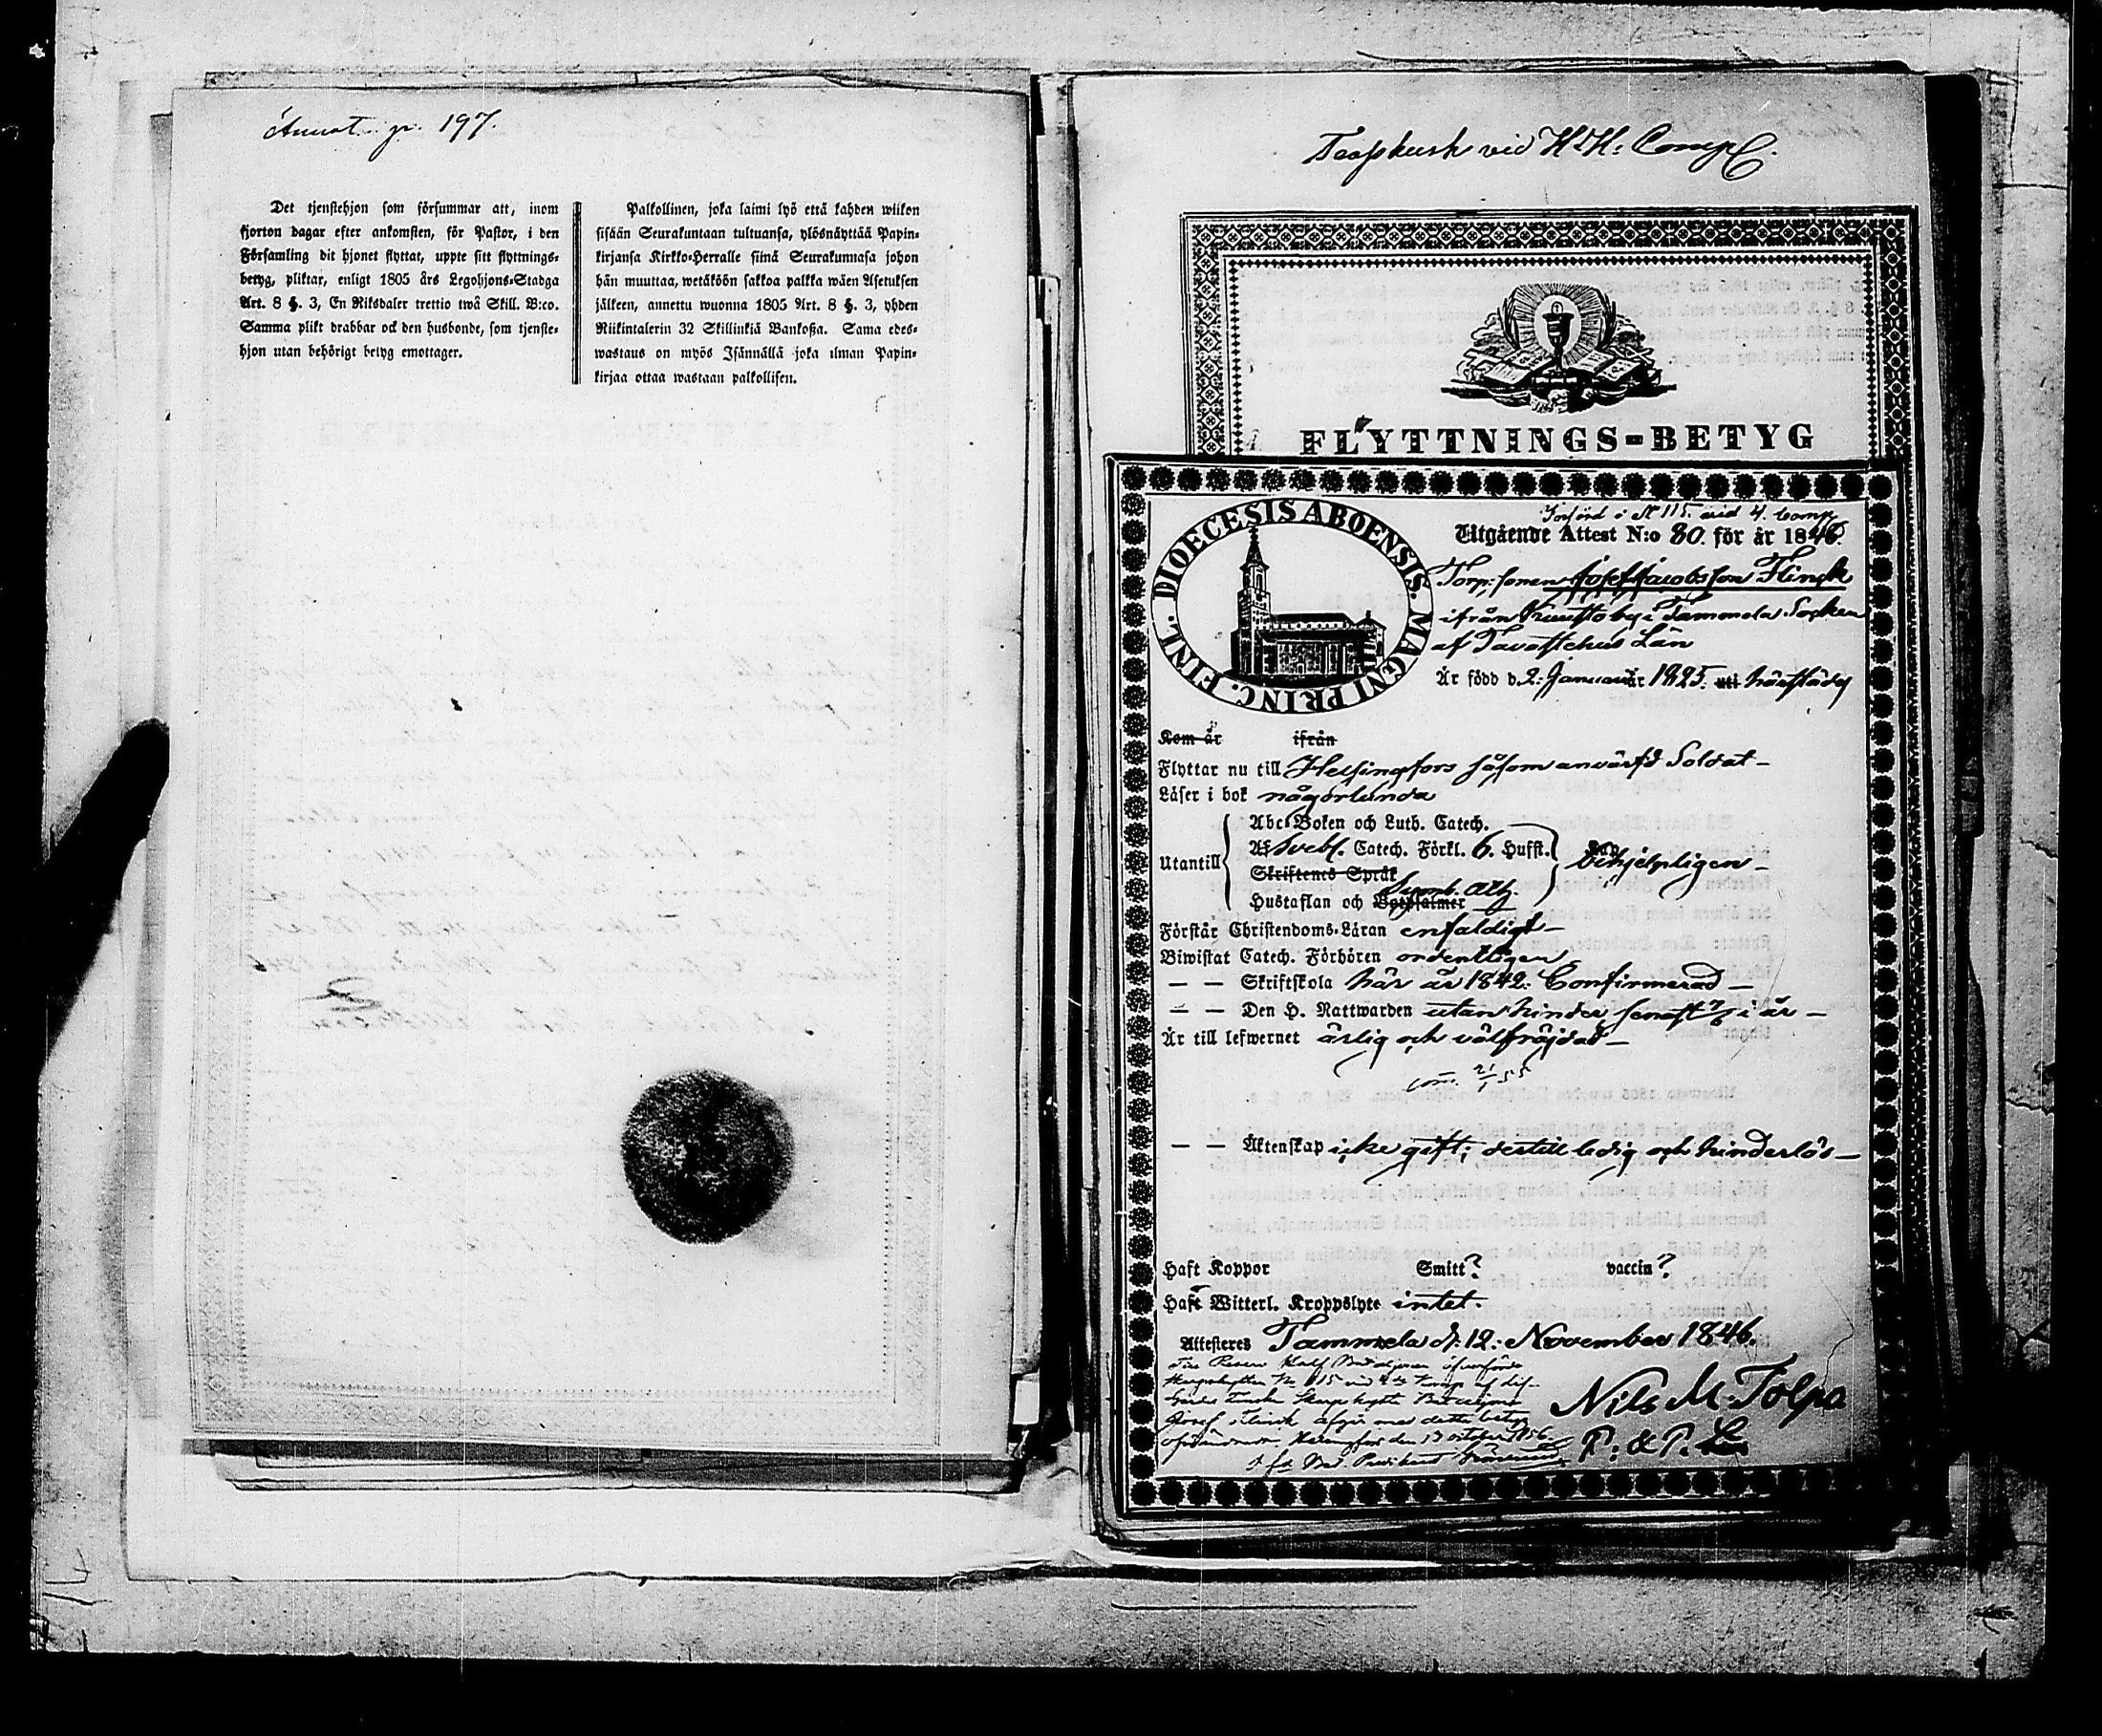 Annot. p. 197.
Det tjenstehjon som försummar att, inom
fjorton dagar efter ankomsten, för Pastor, i den
Församling dit hjonet flyttat, uppte sitt flyttnings-
betyg, pliktar, enligt 1805 års Legohjons-Stadga
Art. 8 §. 3, En Riksdaler trettio twå Skill. B:co.
Samma plikt drabbar ock den husbonde, som tjenste-
hjon utan behörigt betyg emottager.
Palkollinen, joka laimi lyö että kahden wiikon
sisään Seurakuntaan tultuansa, ylösnäyttää Papin-
kirjansa Kirkko-Herralle siinä Seurakunnasa johon
hän muuttaa, wetäköön sakkoa palkka wäen Asetuksen
jälkeen, annettu wuonna 1805 Art. 8 §. 3, yhden
Riikintalerin 32 Skillinkiä Bankoßa. Sama edes-
wastaus on myös Isännällä joka ilman Papin-
kirjaa ottaa wastaan palkollisen.
vid Comp.
FLYTTNINGS-BETYG
DIOECESIS ABOENSIS. MAGNI PRINC. FINL.
Införd i N 115. vid 4. Comp.
Utgående Attest N:o 80. för år 1846.
Torp:sonen Josef Jacobsson Flinck
ifrån by i Tammela Socken
af Tavastehus Län
Är född d. 2. Januari år 1825. uti härstädes
Kom år ifrån
Flyttar nu till Helsingfors såsom anvärfd Soldat
Läser i bok någorlunda
Utantill
Abc-Boken och Luth. Catech.
Af Svebl. Catech. Förkl. 6. Hufst.
Skriftenes Språk
Symb. Ath.
Hustaflan och Botpsalmer
behjelpligen
Förstår Christendoms-Läran enfaldigt
Biwistat Catech. Förhören ordentligen
— — Skriftskola här år 1842. Confirmerad
— — Den H. Nattwarden utan hinder, senast i år
Är till lefwernet ärlig och välfräjdad
com. 21/1 55
— — Äktenskap icke gift; dertill ledig och hinderlös
Haft Koppor Smitt? vaccin?
Haft Witterl. Kroppslyte intet.
Attesteres Tammela d. 12. November 1846.
Josef Flinck afgår med detta betyg
den 13 october 1856
Nils M. Tolpo
P. & P. L.